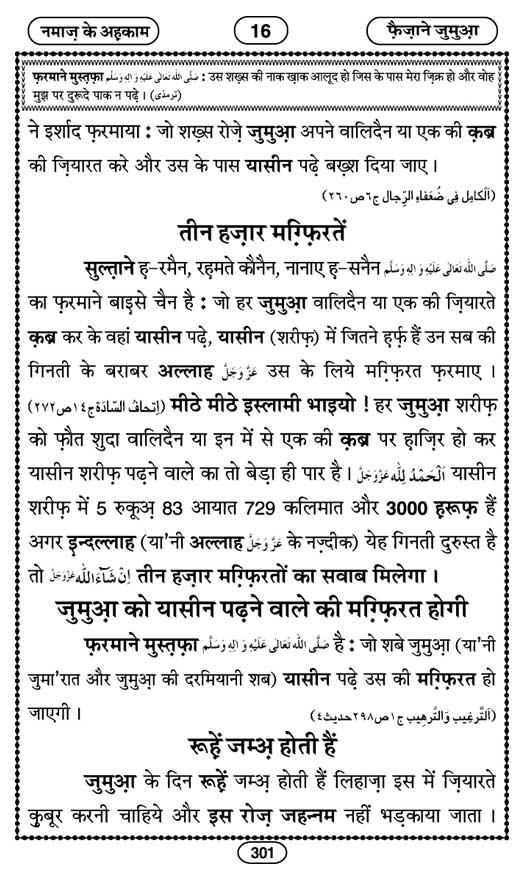 नमाज़ के अह़काम
16
फै़ज़ाने जुमुआ़
फ़रमाने मुस्त़फ़ा صَلَّى اللّٰه تَعَالٰى عَلَيْهِ وَاٰلِهٖ وَسَلَّم : उस शख़्स की नाक ख़ाक आलूद हो जिस के पास मेरा ज़िक्र हो और वोह
मुझ पर दुरूदे पाक न पढ़े । (ترمذی)
ने इर्शाद फ़रमाया : जो शख़्स रोज़े जुमुआ़ अपने वालिदैन या एक की क़ब्र
की ज़ियारत करे और उस के पास यासीन पढ़े बख़्श दिया जाए ।
(اَلْكامِل فِی ضُعَفاءِ الرِّجال ج٦ص٢٦٠)
तीन हज़ार मग़्फ़िरतें
सुल्त़ाने ह़-रमैन, रह़मते कौनैन, नानाए ह़-सनैन صَلَّى اللّٰه تَعَالٰى عَلَيْهِ وَاٰلِهٖ وَسَلَّم
का फ़रमाने बाइ़से चैन है : जो हर जुमुआ़ वालिदैन या एक की ज़ियारते
क़ब्र कर के वहां यासीन पढ़े, यासीन (शरीफ़) में जितने ह़र्फ़ हैं उन सब की
गिनती के बराबर अल्लाह عَزَّوَجَلَّ उस के लिये मग़्फ़िरत फ़रमाए ।
(اِتحافُ السّادَة ج١٤ص٢٧٢) मीठे मीठे इस्लामी भाइयो ! हर जुमुआ़ शरीफ़
को फ़ौत शुदा वालिदैन या इन में से एक की क़ब्र पर ह़ाज़िर हो कर
यासीन शरीफ़ पढ़ने वाले का तो बेड़ा ही पार है । اَلْحَمْدُ لِلّٰه عَزَّوَجَلَّ यासीन
शरीफ़ में 5 रुकूअ़ 83 आयात 729 कलिमात और 3000 ह़रूफ़ हैं
अगर इ़न्दल्लाह (या'नी अल्लाह عَزَّوَجَلَّ के नज़्दीक) येह गिनती दुरुस्त है
तो اِنْ شَآءَاللّٰه عَزَّوَجَلَّ तीन हज़ार मग़्फ़िरतों का सवाब मिलेगा ।
जुमुआ़ को यासीन पढ़ने वाले की मग़्फ़िरत होगी
फ़रमाने मुस्त़फ़ा صَلَّى اللّٰه تَعَالٰى عَلَيْهِ وَاٰلِهٖ وَسَلَّم है : जो शबे जुमुआ़ (या'नी
जुमा'रात और जुमुआ़ की दरमियानी शब) यासीन पढ़े उस की मग़्फ़िरत हो
जाएगी । (اَلتَّرغِيب وَالتَّرهِيب ج١ص٢٩٨حديث٤)
रूह़ें जम्अ़ होती हैं
जुमुआ़ के दिन रूह़ें जम्अ़ होती हैं लिहाज़ा इस में ज़ियारते
क़ुबूर करनी चाहिये और इस रोज़ जहन्नम नहीं भड़काया जाता ।
301